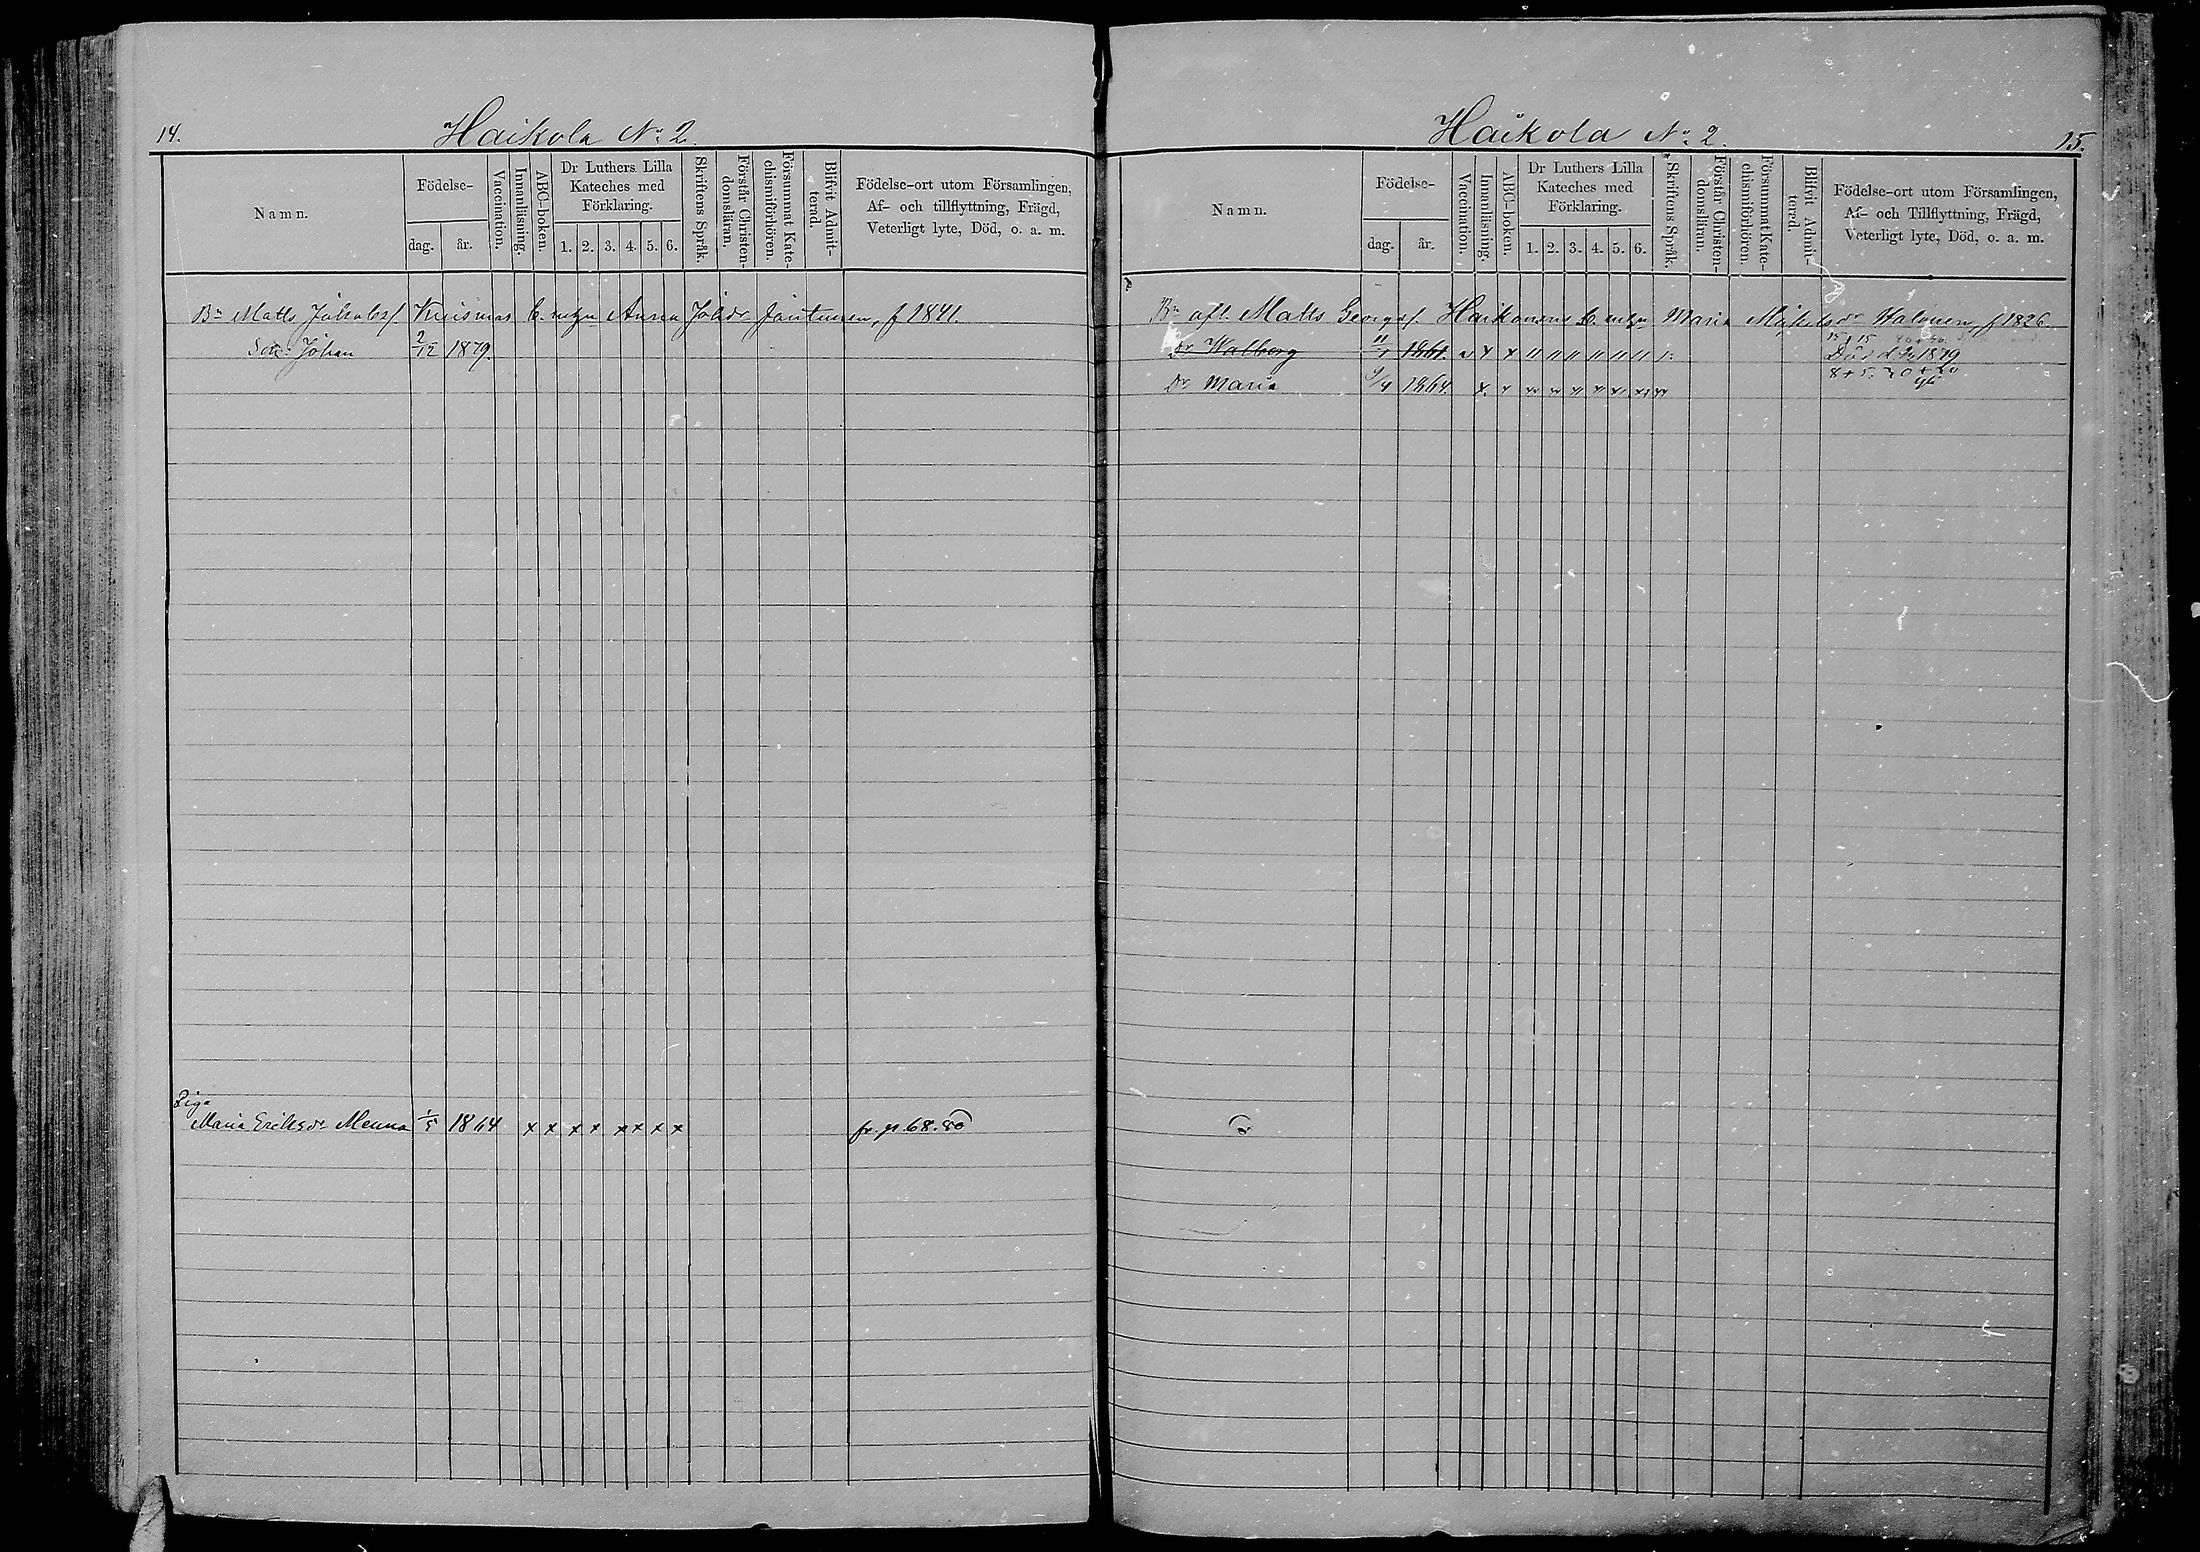 14.
Haikola No 2.
Namn.
Födelse-
dag. år.
Vaccination.
Innanläsning.
ABC-boken.
Dr Luthers Lilla
Kateches med
Förklaring.
1. 2. 3. 4. 5. 6.
Skriftens Språk.
Förstår Christen-
domsläran.
Försummat Kate-
chismiförhören.
Blifvit Admit-
terad.
Födelse-ort utom Församlingen,
Af- och tillflyttning, Frägd,
Veterligt lyte, Död, o. a. m.
Bn Matts Jakobss. m. Anna f 1841.
Son: Johan 2/12 1879.
Maria Eriksdr 1/5 1864 x x x x x x x x fr. p. 68.
Haikola No 2.
15.
Namn.
Födelse-
dag. år.
Vaccination.
Innanläsning.
ABC-boken.
Dr Luthers Lilla
Kateches med
Förklaring.
1. 2. 3. 4. 5. 6.
Skriftens Språk.
Förstår Christen-
domsläran.
Försummat Kate-
chismiförhören.
Blifvit Admit-
terad.
Födelse-ort utom Församlingen,
Af- och Tillflyttning, Frägd,
Veterligt lyte, Död, o. a. m.
Bn afl. Matts Georgss. Haikonens Maria f 1826.
Dr Walborg 11/1 1861. Död d. 1879
Dr Maria 1864.